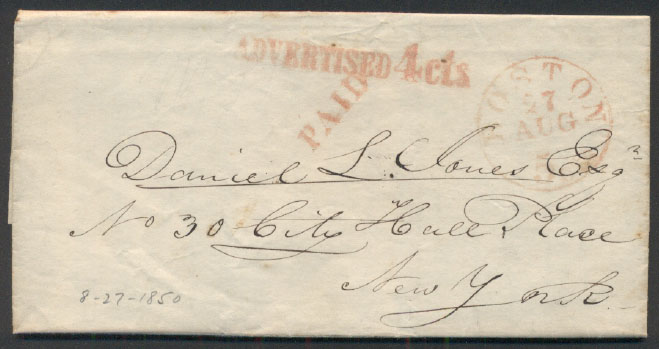 ADVERTISED 4 cts
PAID
BOSTON
27
AUG
Daniel L. Jones Esqr
No 30 City Hall Place
New York
8-27-1850